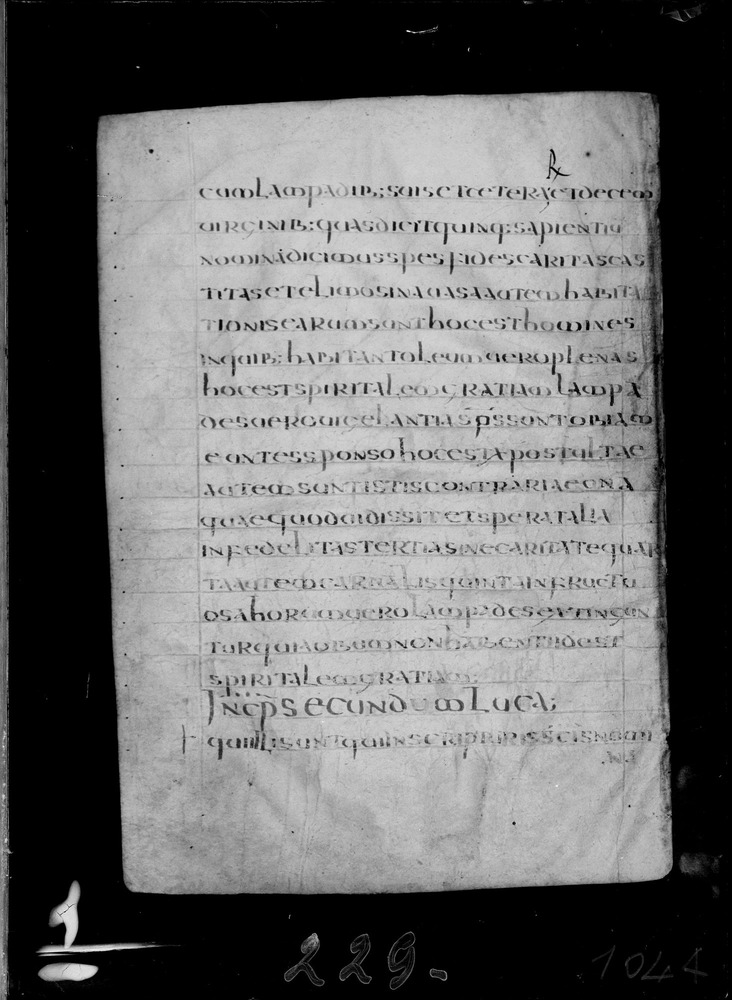 cumlampadib;suisetceteraetdecem
uirginib:quasdicitquinq;sapientiu
nominādicimusspesfidescaritascas
titasetelimosinauasaautemhabita
tioniseārumsunthocesthomines
inquib:habitantoleumueroplenas
hocestspiritalemgratiamlampa
desuerouigelantiaspssuntobiam
euntessponsohocestapostultae
autemsuntistiscontrariaeuna
quaequoduidissitetsperatalia
infedelitastertiasinecaritatequar
taautemcarnalisquintainfructu
osahorumuerolampadesextingun
turquiaoleumnonhabentidest
spiritalemgratiam;
Incp̄secundumLuca;
quiillisuntquiinscripturissc̄isnomi
.N.
229.
1044